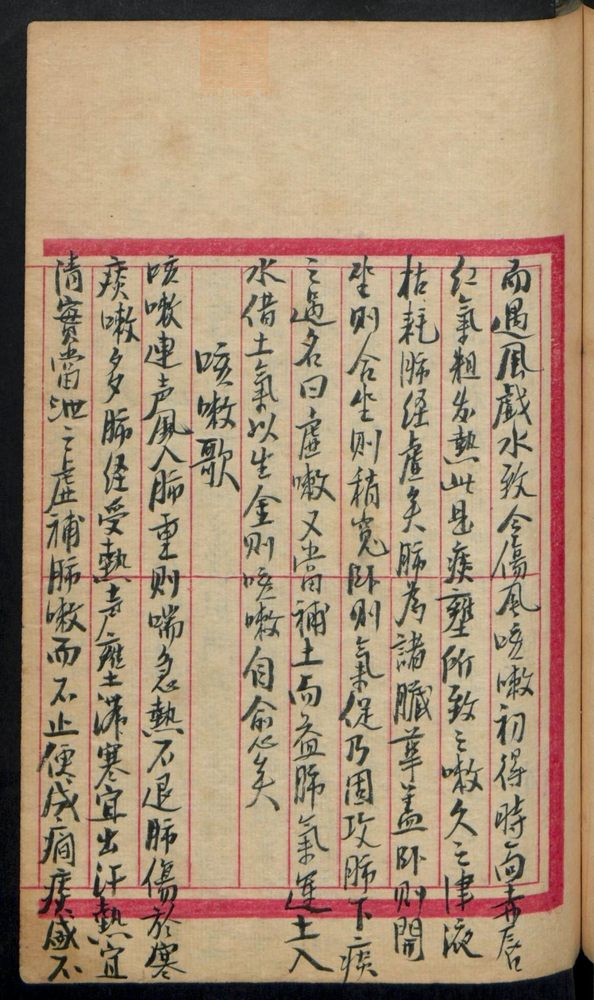 而遇風戲水致令傷風咳嗽初得時面赤唇
紅氣粗发熱此是痰壅所致之嗽久之津液
枯耗肺经虛矣肺為諸臟華盖卧则開
坐则合坐则稍寬卧则氣促乃因攻肺下痰
之過名曰虛嗽又當補土而益肺氣運土入
水借土氣以生金则咳嗽自愈矣
咳嗽歌
咳嗽連声風入肺重则喘急熱不退肺傷於寒
痰嗽多肺经受熱声壅滞寒宜出汗熱宜
清實當泄之虛補肺嗽而不止便成癇痰盛不